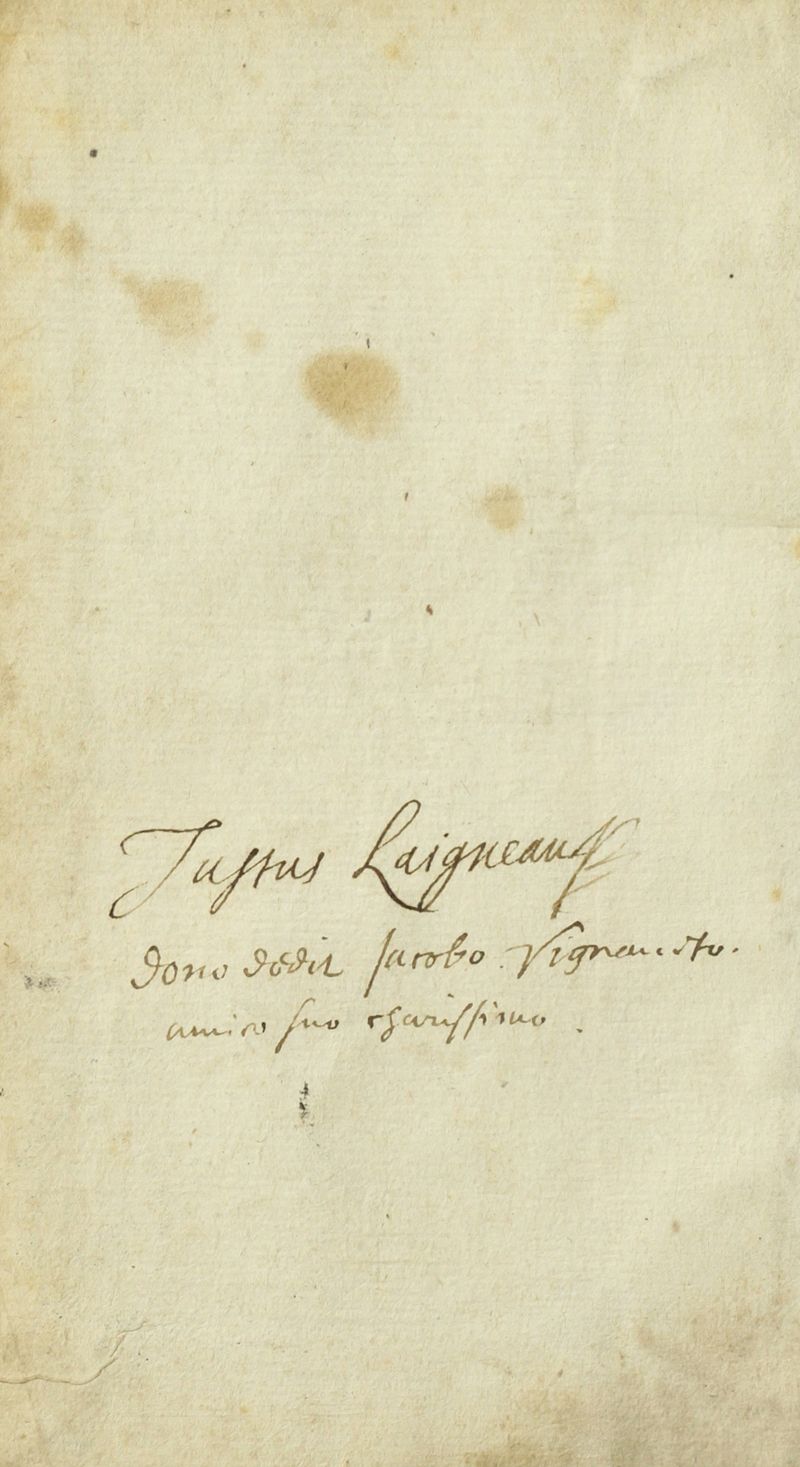 Justus Laigneaux
dono dedit Jacobo
amico suo charissimo .